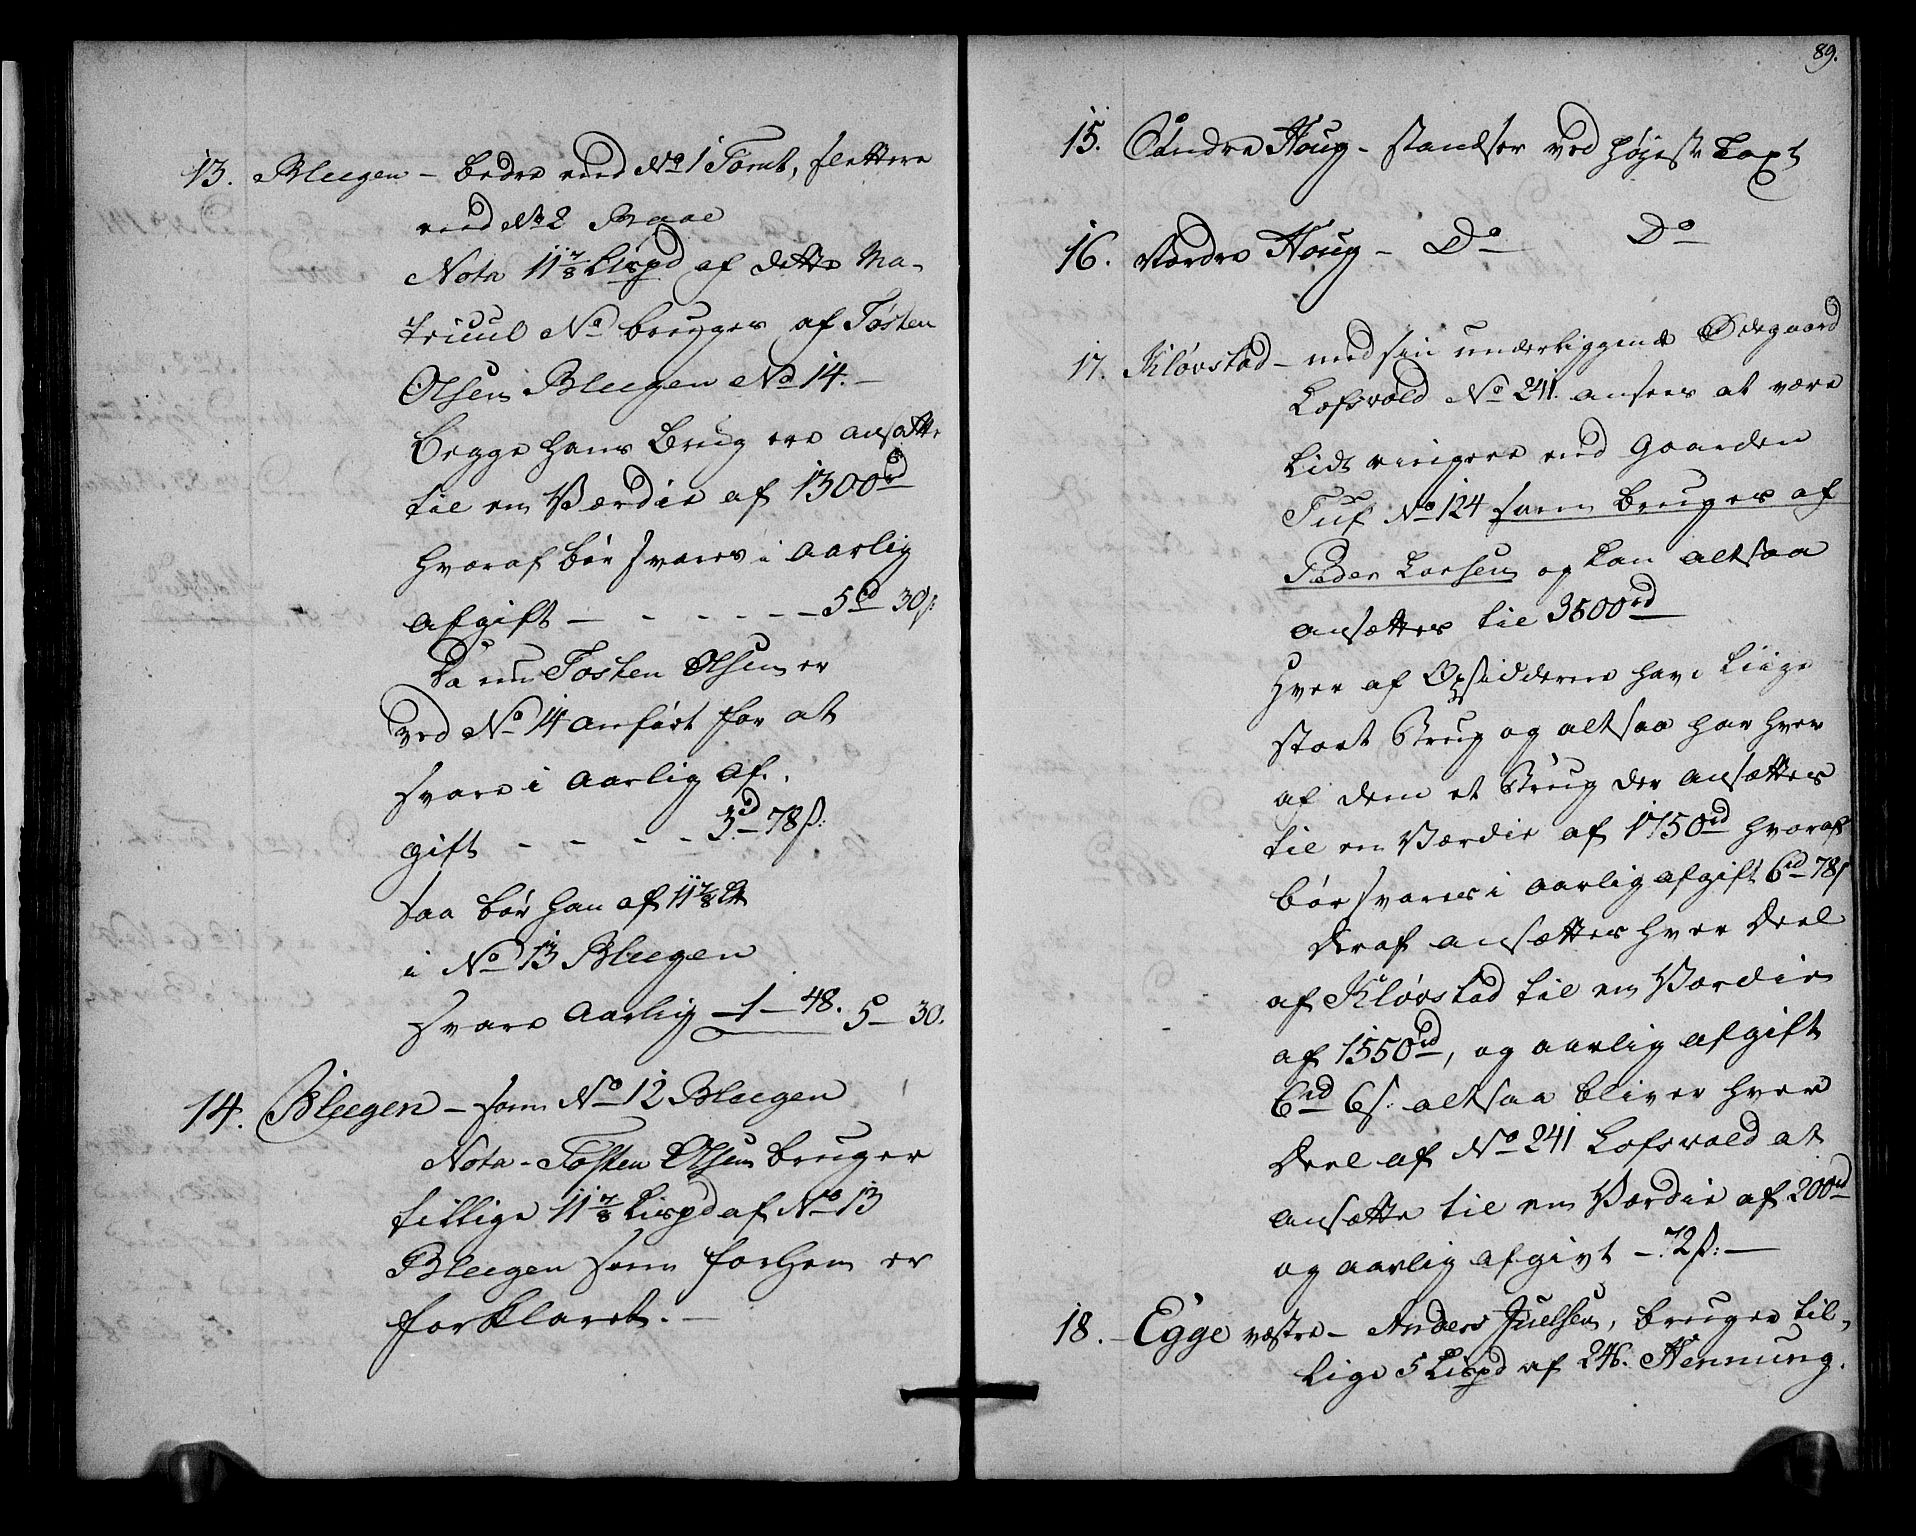 13. Bleegen - bedre end No 1 Tomt, slettere
end No 2 Braae
Nota 11 7/8 Lispd af dette Ma-
tricul No bruges af Tosten
Olsen Bleegen No 14. -
begge hans Brug ere ansatte
til en Værdie af 1300 rd
hvoraf bør svares i aarlig
afgift - - - - - - 5 rd 30 s:
Da nu Tosten Olsen er
ved No 14 anført for at
svare i aarlig af-
gift - - - - 3 rd - 78 s:
saa bør han af 11 7/8
i No 13 Bleegen
svare aarlig - 1 - 48. 5 - 30.
14. Bleegen - som No 12 Bleegen
Nota - Tosten Olsen bruger
tillige 11 7/8 Lispd af No 13
Bleegen som forhen er
forklaret. -
89.
15. Øndre Houg - standser ved høyeste Taxt
16. Nordre Houg - Do Do
17. Kløvstad - med sin underliggende Ødegaard
Lofsvold No 241. ansees at være
lidt ringere end Gaarden
Tuf No 124 som bruges af
Peder Larsen og kan altsaa
ansættes til 3500 rd
Hver af Opsidderne have liige
stort Brug og altsaa har hver
af dem et Brug der ansættes
til en Værdie af 1750 rd hvoraf
bør svares i aarlig afgift 6 rd 78 s
deraf ansættes hver Deel
af Kløvstad til en Værdie
af 1550 rd, og aarlig afgift
6 rd 6 s: altsaa bliver hver
Deel af No 241 Lofsvold at
ansætte til en Værdie af 200 rd
og aarlig afgivt - 72 s: -
18. - Egge vestre - Anders Juelsen, bruger til-
lige 5 Lispd af 246. Hennung.